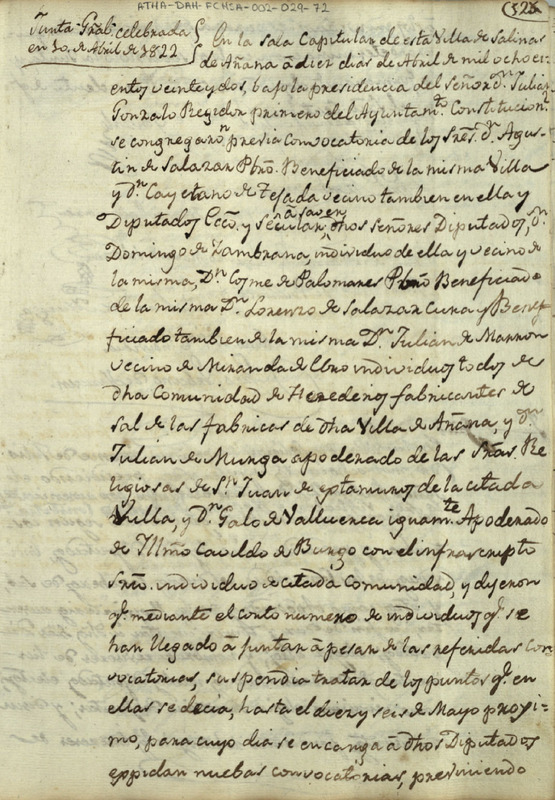 ATHA-DAH-FCHSA-002-029-72
Junta Gral. celebrada
en 10. de Abril de 1822
En la sala Capitular de esta Villa de Salinas
de Añana á diez dias de Abril de mil ochoci-
entos veinte y dos, bajo la presidencia del Señor dn. Julian
Gonzalo Regidor primero del Ayuntamto. Constitucion.
se congregaron previa convocatoria de los Sres. dn. Agus-
tin de Salazar Pbro. Beneficiado de la misma Villa
y dn. Cayetano de Tejada vecino tambien en ella y
Diputados Ecco. y Secular, á saver dhos señores Diputados, dn.
Domingo de Zambrana, individuo de ella y vecino de
la misma, Dn. Cosme de Palomares Pbro Beneficiado
de la misma Dn. Lorenzo de Salazar Cura y Bene-
ficiado tambien de la misma Dn. Julian de Marron
vecino de Miranda de Ebro individuos todos de
dha Comunidad de Herederos fabricantes de
sal de las fabricas de dha Villa de Añana, y dn.
Julian de Munga apoderado de las Sras. Re-
ligiosas de Sn. Juan de extramuros de la citada
Villa, y dn. Galo de Valluerca iguamte. Apoderado
de Illmo Cavildo de Burgo con el infraescripto
Srio. individuo de citada Comunidad, y dijeron
q. mediante el corto numero de individuos q. se
han llegado á juntar á pesar de las referidas con
vocatorias, suspendia tratar de los puntos q. en
ellas se decia, hasta el diez y seis de Mayo proxi-
mo, para cuyo dia se encarga á dhos Diputados
expidan nuebas convocatorias, previniendo